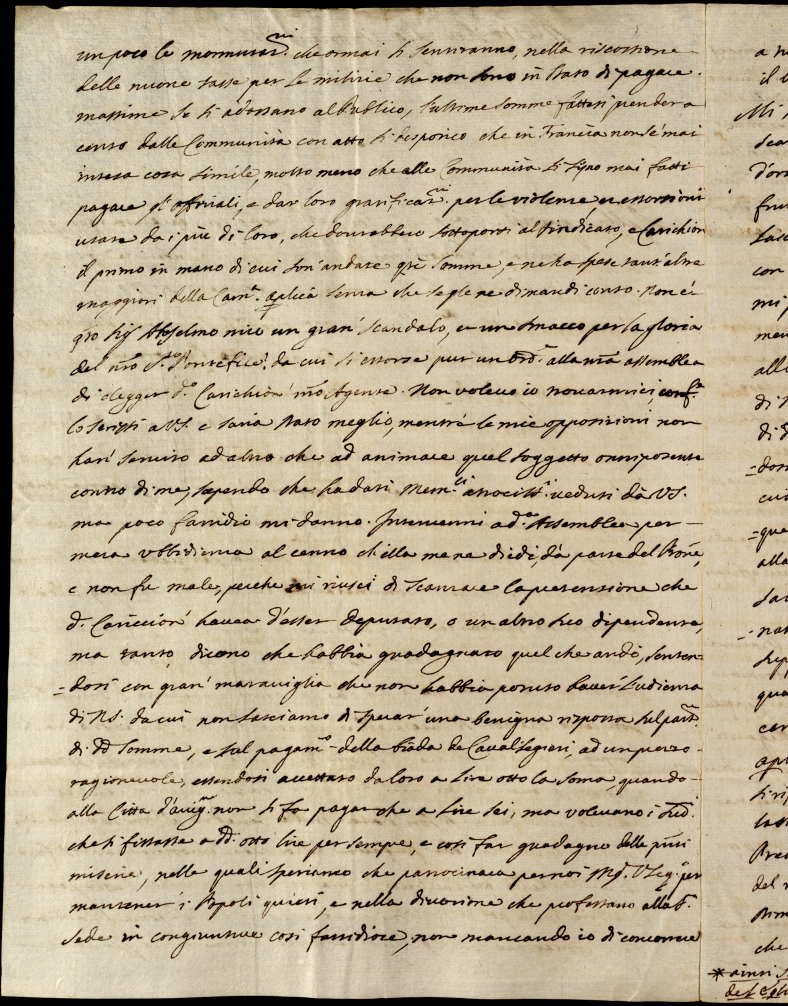 un poco le mormorat.ni che ormai si sentiranno, nella riscossione
delle nuove tasse per le militie che non sono in stato di pagare.
massime se si adossano al Publico, l'ultime somme fattesi prender a
censo dalle Communità con atto sì despotico che in Francia non s'è mai
intesa cosa simile, molto meno che alle Communità si sijno mai fatti
pagare gl'offitiali, e dar loro gratificat.ni per le violenze, et estorsioni
usate da i più di loro, che dourebbero sottoporsi al sindicato, e Carichion
il primo in mano di cui son' andate q.te somme, e ne ha spese tant'altre
maggiori della Cam.a aplica senza che se gle ne dimandi conto. Non è
q.to Sig.r Anselmo mio un gran' scandalo, et un smacco per la gloria
del n.ro S.to Pontefice! da cui si estorse pur un ord.e alla n.ra assemblea
di elegger d.o Carichion' n.ro Agente. Non volevo io
lo scrissi a V.S. e saria stato meglio, mentre le mie oppositioni non
han' servito ad altro che ad animare quel soggetto onnipotente
contro di me, sapendo che ha dati Mem.li atrociss.i veduti da V.S.
ma poco fastidio mi danno. Intervenni a d.a Assemblea per
mera ubbidienza al cenno ch'ella me ne diede, da parte del Pone,
e non fu male, perche mi riusci di scansare la pretensione che
d.o Cariccion' havea d'esser deputato, o un altro suo dipendente,
ma tanto dicono che habbia guadagnato quel che andò, senten=
=dosi con gran' maraviglia che non habbia potuto haver l'udienza
di N.S. da cui non lasciamo di sperar' una benigna risposta sul part.
di d.e somme, e sul pagam.to della biada de Caval'legieri, ad un prezzo
ragionevole, essendosi accettato da loro a lire otto la soma, quando
alla Città d'Avig.ne non si fa pagar che a lire sei, ma volevano i sud.i
che si fissasse a d.e otto lire per sempre, e così far guadagno delle p.nti
miserie, nelle quali speriamo che patrocinarà per noi per
mantener i Popoli quieti, e nella divotione che professano alla S.
Sede in congiunture così fastidiose, non mancando io di concorrere